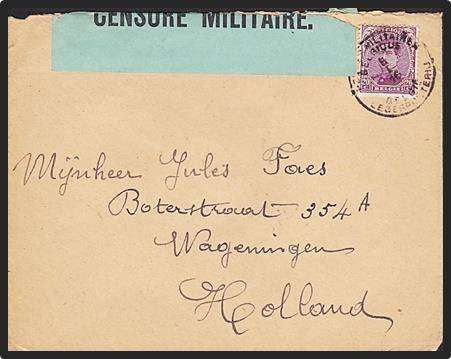 CENSURE MILITAIRE.
MILITAIRES
BELGIQUE
LEGERPOSTERIJ
Mijnheer Jules Faes
Boterstraat 354A
Wageningen
Holland